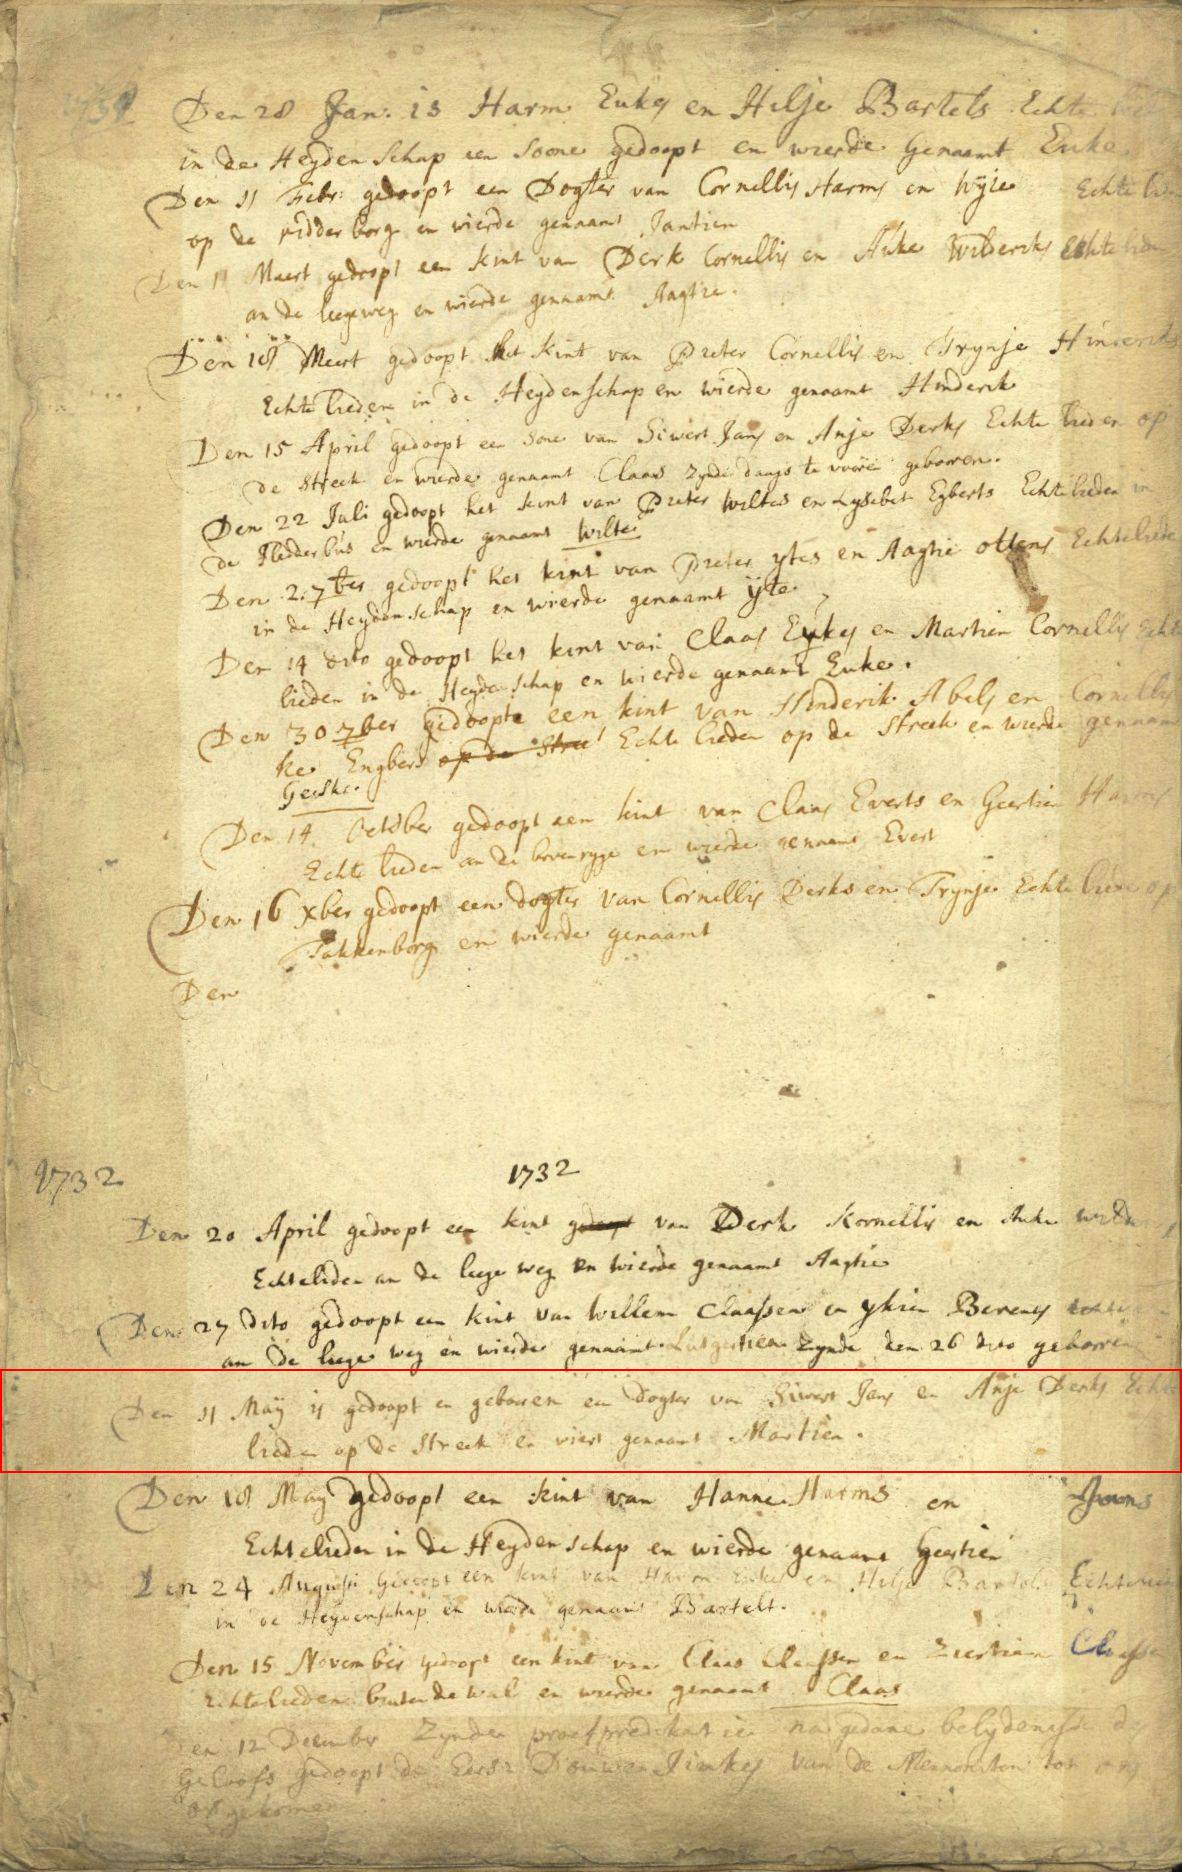 1731
Den 28 Jan: is Harm Eukes en Hilje Bartels Echte
in de Heyden schap een soone gedoopt en wierde Genaamt Euke.
Den 11 Febr: gedoopt een Dogter van Cornellis Harms en Wyie Echte
op de ridder borg en wierde genaamt Jantien
Den 11 Maert gedoopt een kint van Derk Cornellis en Auke Wilderiks Echte lieden
an de leegeweg en wierde genaamt Aagtie.
Den 18 Meert gedoopt het kint van Pieter Cornellis en Trynje Hinderiks
Echte lieden in de Heydenschap en wierde genaamt Hinderik
Den 15 April gedoopt een sone van Siwert Jans en Anje Derks Echte lieden op
de Streek en wierde genaamt Claas zynde daags te vooren gebooren.
Den 22 Juli gedoopt het kint van Pieter Wiltes en Lysebet Egberts Echtelieden in
de Fledderbus en wierde genaamt Wilte
Den 2. 7ber gedoopt het kint van Pieter ytes en Aagtie ottens Echteliede
in de Heydenschap en wierde genaamt yte
Den 14 dito gedoopt het kint van Claas Eukes en Martien Cornellis Echte
lieden in de Heydenschap en wierde genaamt Euke.
Den 30 7ber gedoopt een kint van Hinderik Abels en Cornellis
ke Engbers op de Stree Echte lieden op de Streek en wierde genaamt
Geeske.
Den 14. October gedoopt een kint van Claas Everts en Geertien Harms
Echte lieden an de bovenrygge en wierde genaamt Evert
Den 16 xber gedoopt een dogter van Cornellis Derks en Trynje Echte liede op
Takkenborg en wierde genaamt
Den
1732
1732
Den 20 April gedoopt een kint gedoopt van Derk Kornellis en Auke
Echtelieden an de leege weg en wierde genaamt Aagtie
Den 27 dito gedoopt een kint van Willem Claassen en ykien Berents
an de leege weg en wierde genaamt Lutgertien zynde den 26 dito gebooren
Den 11 May is gedoopt en gebooren een dogter van Siwert Jans en Anje Derks Echte
lieden op de Streek en wiert genaamt Martien.
Den 18 May gedoopt een kint van Hanne Harms en Jans
Echtelieden in de Heydenschap en wierde genaamt Geertien
Den 24 Augusti gedoopt een kint van Harm Eukes en Hilje Bartels Echte
in de Heydenschap en wierde genaamt Bartelt.
Den 15 November gedoopt een kint van Claas Claassen en Claassen
Echtelieden buiten de wal en wierde genaamt Claas
Den 12 December zynde proefpredikatie na gedane belydenisse des
Geloofs gedoopt de Eers: Douwe Jinkes van de Mennoniten tot ons
overgekomen